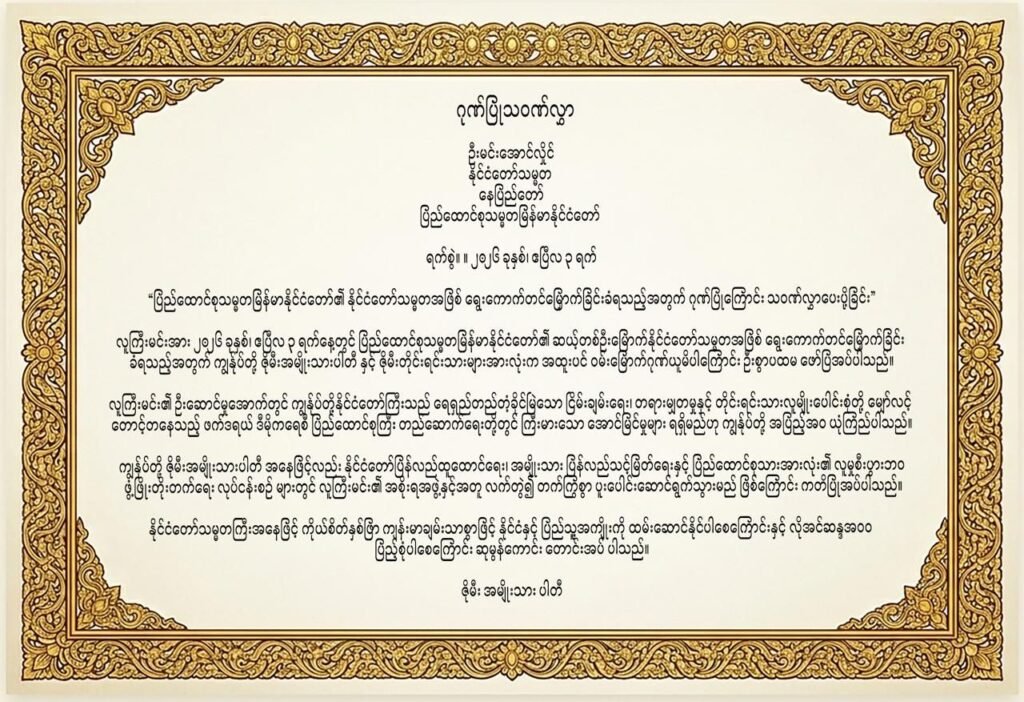 ဂုဏ်ပြုသဝဏ်လွှာ
ဦးမင်းအောင်လှိုင်
နိုင်ငံတော်သမ္မတ
နေပြည်တော်
ပြည်ထောင်စုသမ္မတမြန်မာနိုင်ငံတော်
ရက်စွဲ။ ။ ၂၀၂၆ ခုနှစ်၊ ဧပြီလ ၃ ရက်
“ပြည်ထောင်စုသမ္မတမြန်မာနိုင်ငံတော်၏ နိုင်ငံတော်သမ္မတအဖြစ် ရွေးကောက်တင်မြှောက်ခြင်းခံရသည့်အတွက် ဂုဏ်ပြုကြောင်း သဝဏ်လွှာပေးပို့ခြင်း”
လူကြီးမင်းအား ၂၀၂၆ ခုနှစ်၊ ဧပြီလ ၃ ရက်နေ့တွင် ပြည်ထောင်စုသမ္မတမြန်မာနိုင်ငံတော်၏ ဆယ့်တစ်ဦးမြောက်နိုင်ငံတော်သမ္မတအဖြစ် ရွေးကောက်တင်မြှောက်ခြင်း
ခံရသည့်အတွက် ကျွန်ုပ်တို့ ဇိုမီးအမျိုးသားပါတီ နှင့် ဇိုမီးတိုင်းရင်းသားများအားလုံးက အထူးပင် ဝမ်းမြောက်ဂုဏ်ယူမိပါကြောင်း ဦးစွာပထမ ဖော်ပြအပ်ပါသည်။
လူကြီးမင်း၏ ဦးဆောင်မှုအောက်တွင် ကျွန်ုပ်တို့နိုင်ငံတော်ကြီးသည် ရေရှည်တည်တံ့ခိုင်မြဲသော ငြိမ်းချမ်းရေး၊ တရားမျှတမှုနှင့် တိုင်းရင်းသားလူမျိုးပေါင်းစုံတို့ မျှော်လင့်
တောင့်တနေသည့် ဖက်ဒရယ် ဒီမိုကရေစီ ပြည်ထောင်စုကြီး တည်ဆောက်ရေးတို့တွင် ကြီးမားသော အောင်မြင်မှုများ ရရှိမည်ဟု ကျွန်ုပ်တို့ အပြည့်အဝ ယုံကြည်ပါသည်။
ကျွန်ုပ်တို့ ဇိုမီးအမျိုးသားပါတီ အနေဖြင့်လည်း နိုင်ငံတော်ပြန်လည်ထူထောင်ရေး၊ အမျိုးသား ပြန်လည်သင့်မြတ်ရေးနှင့် ပြည်ထောင်စုသားအားလုံး၏ လူမှုစီးပွားဘဝ
ဖွံ့ဖြိုးတိုးတက်ရေး လုပ်ငန်းစဉ် များတွင် လူကြီးမင်း၏ အစိုးရအဖွဲ့နှင့်အတူ လက်တွဲ၍ တက်ကြွစွာ ပူးပေါင်းဆောင်ရွက်သွားမည် ဖြစ်ကြောင်း ကတိပြုအပ်ပါသည်။
နိုင်ငံတော်သမ္မတကြီးအနေဖြင့် ကိုယ်စိတ်နှစ်ဖြာ ကျန်းမာချမ်းသာစွာဖြင့် နိုင်ငံနှင့် ပြည်သူ့အကျိုးကို ထမ်းဆောင်နိုင်ပါစေကြောင်းနှင့် လိုအင်ဆန္ဒအဝဝ
ပြည့်စုံပါစေကြောင်း ဆုမွန်ကောင်း တောင်းအပ် ပါသည်။
ဇိုမီး အမျိုးသား ပါတီ